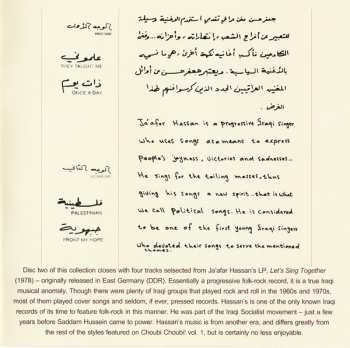 الوجه الأول
علموني
THEY TAUGHT ME
ذات يوم
ONCE A DAY
الوجه الثاني
فلسطينية
PALESTINIAN
FRONT MY HOPE
جعفر حسن مغن عراقي تقدمي استخدم الأغنية وسيلة
للتعبير عن أفراح الشعب وانتصاراته وأحزانه
بالأغنية السياسية. ويعتبر جعفر حسن من أوائل
المغنين العراقيين الجدد الذين كرسوا فنهم لهذا
الغرض.
Ja'afar Hassan is a progressive Iraqi singer
who uses songs as a means to express
people's joyness, victories and sadnesses..
He sings for the toiling masses, thus
giving his songs a new spirit - that is what
we call Political songs. He is considered
to be one of the first young Iraqi singers
who devoted their songs to serve the mentioned
themes.
Disc two of this collection closes with four tracks selsected from Ja'afar Hassan's LP, Let's Sing Together
(1978) – originally released in East Germany (DDR). Essentially a progressive folk-rock record, it is a true Iraqi
musical anomaly. Though there were plenty of Iraqi groups that played rock and roll in the 1960s and 1970s,
most of them played cover songs and seldom, if ever, pressed records. Hassan's is one of the only known Iraqi
records of its time to feature folk-rock in this manner. He was part of the Iraqi Socialist movement – just a few
years before Saddam Hussein came to power. Hassan's music is from another era, and differs greatly from
the rest of the styles featured on Choubi Choubi! vol. 1, but is certainly no less enjoyable.